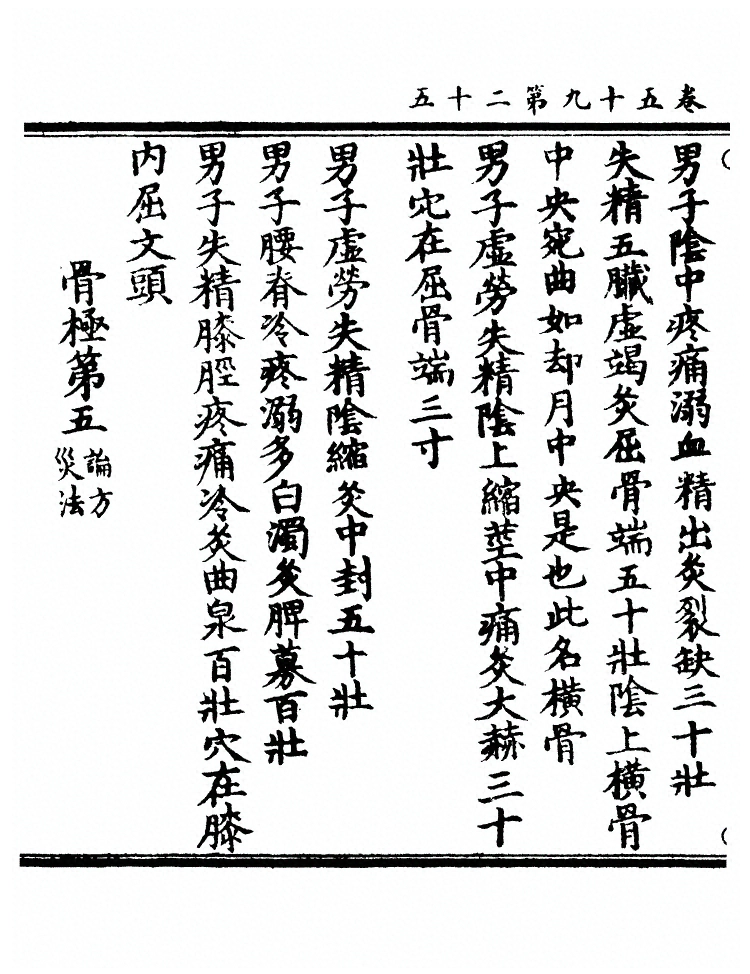 卷五十九第二十五
男子陰中疼痛溺血精出灸裂缺三十壯
失精五臟虛竭灸屈骨端五十壯陰上橫骨
中央宛曲如却月中央是也此名橫骨
男子虛勞失精陰上縮莖中痛灸大赫三十
壯穴在屈骨端三寸
男子虛勞失精陰縮灸中封五十壯
男子腰脊冷疼溺多白濁灸脾募百壯
男子失精膝脛疼痛冷灸曲泉百壯穴在膝
內屈文頭
骨極第五
論方
灸法